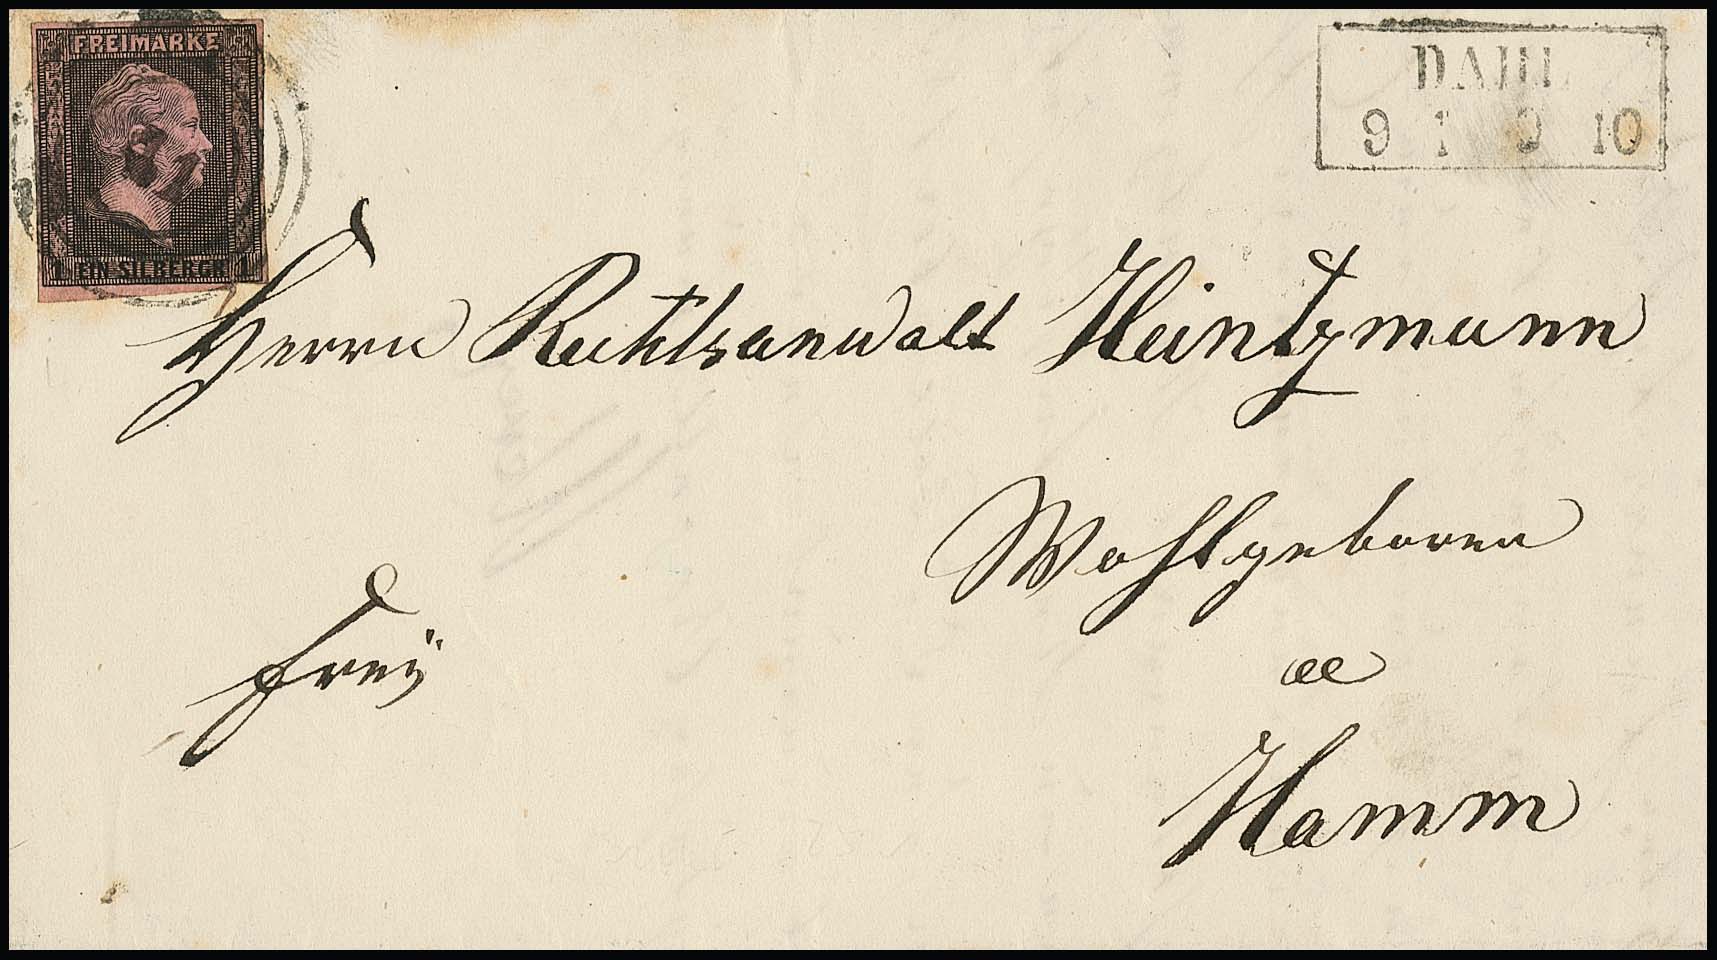 FREIMARKE
1 EIN SILBERGR. 1
DAHL
9 1 9 10
Herrn Rechtsanwalt Heintzmann
Wohlgeboren
Frey
Hamm